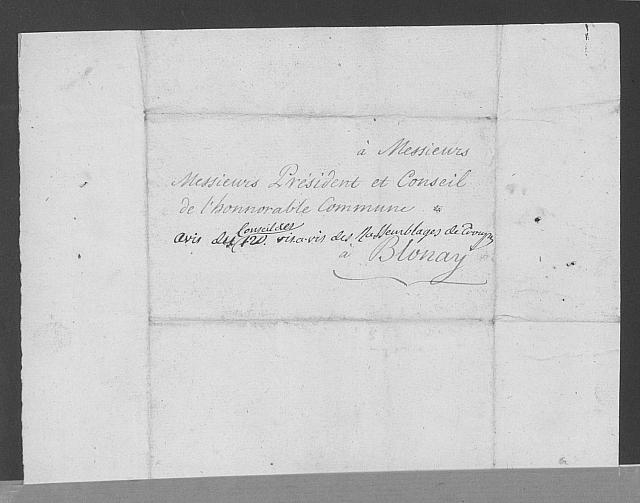 à Messieurs
Messieurs Président et Conseil
de l'honnorable Commune
Conseil des
avis des 120. vis a vis des Rassemblages de Troupes
à Blonay